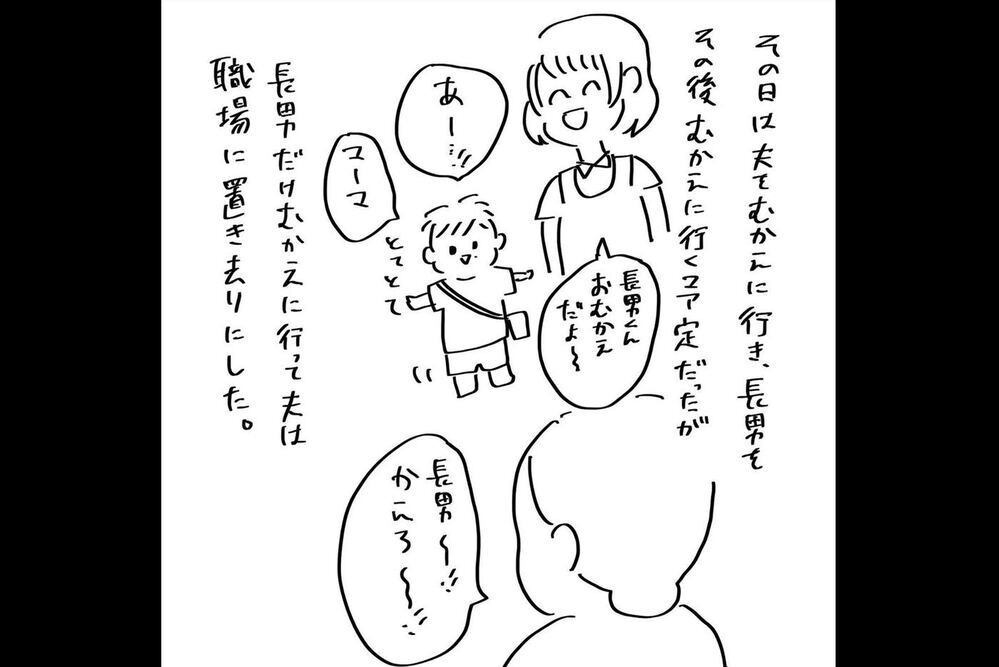 その日は夫をむかえに行き、長男を
その後むかえに行く予定だったが
長男くん
おむかえ
だよ〜
あー…!!
マーマ
とてとて
長男だけむかえに行って夫は
職場に置き去りにした。
長男〜!!
かえろ〜!!